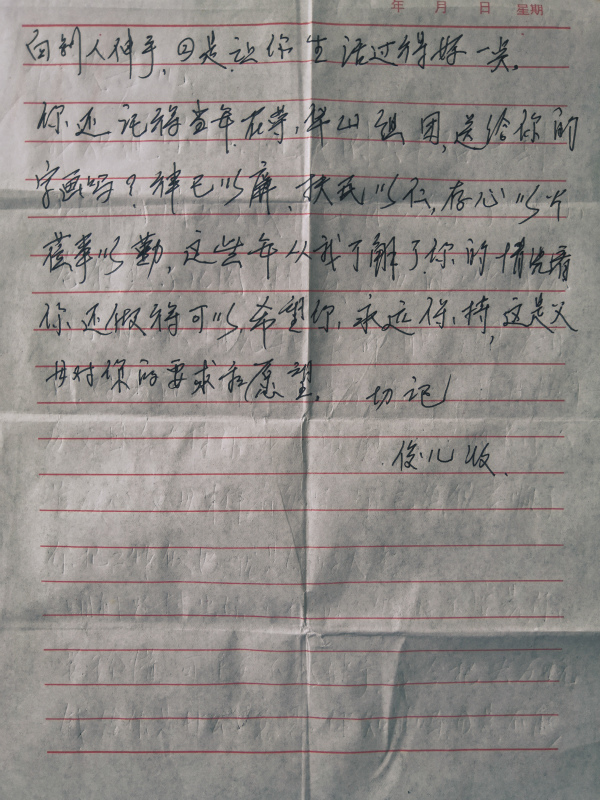 年 月 日 星期
向别人伸手,只是让你生活过得好一点。
你还记得当年在荣,伴山组团,送给你的
字画吗?律己以廉、扶民以仁,存心以公
莅事以勤,这些年从我了解了你的情况看
你还做得可以,希望你,永远保持,这是父
母对你的要求和愿望。 切记
俊儿收.